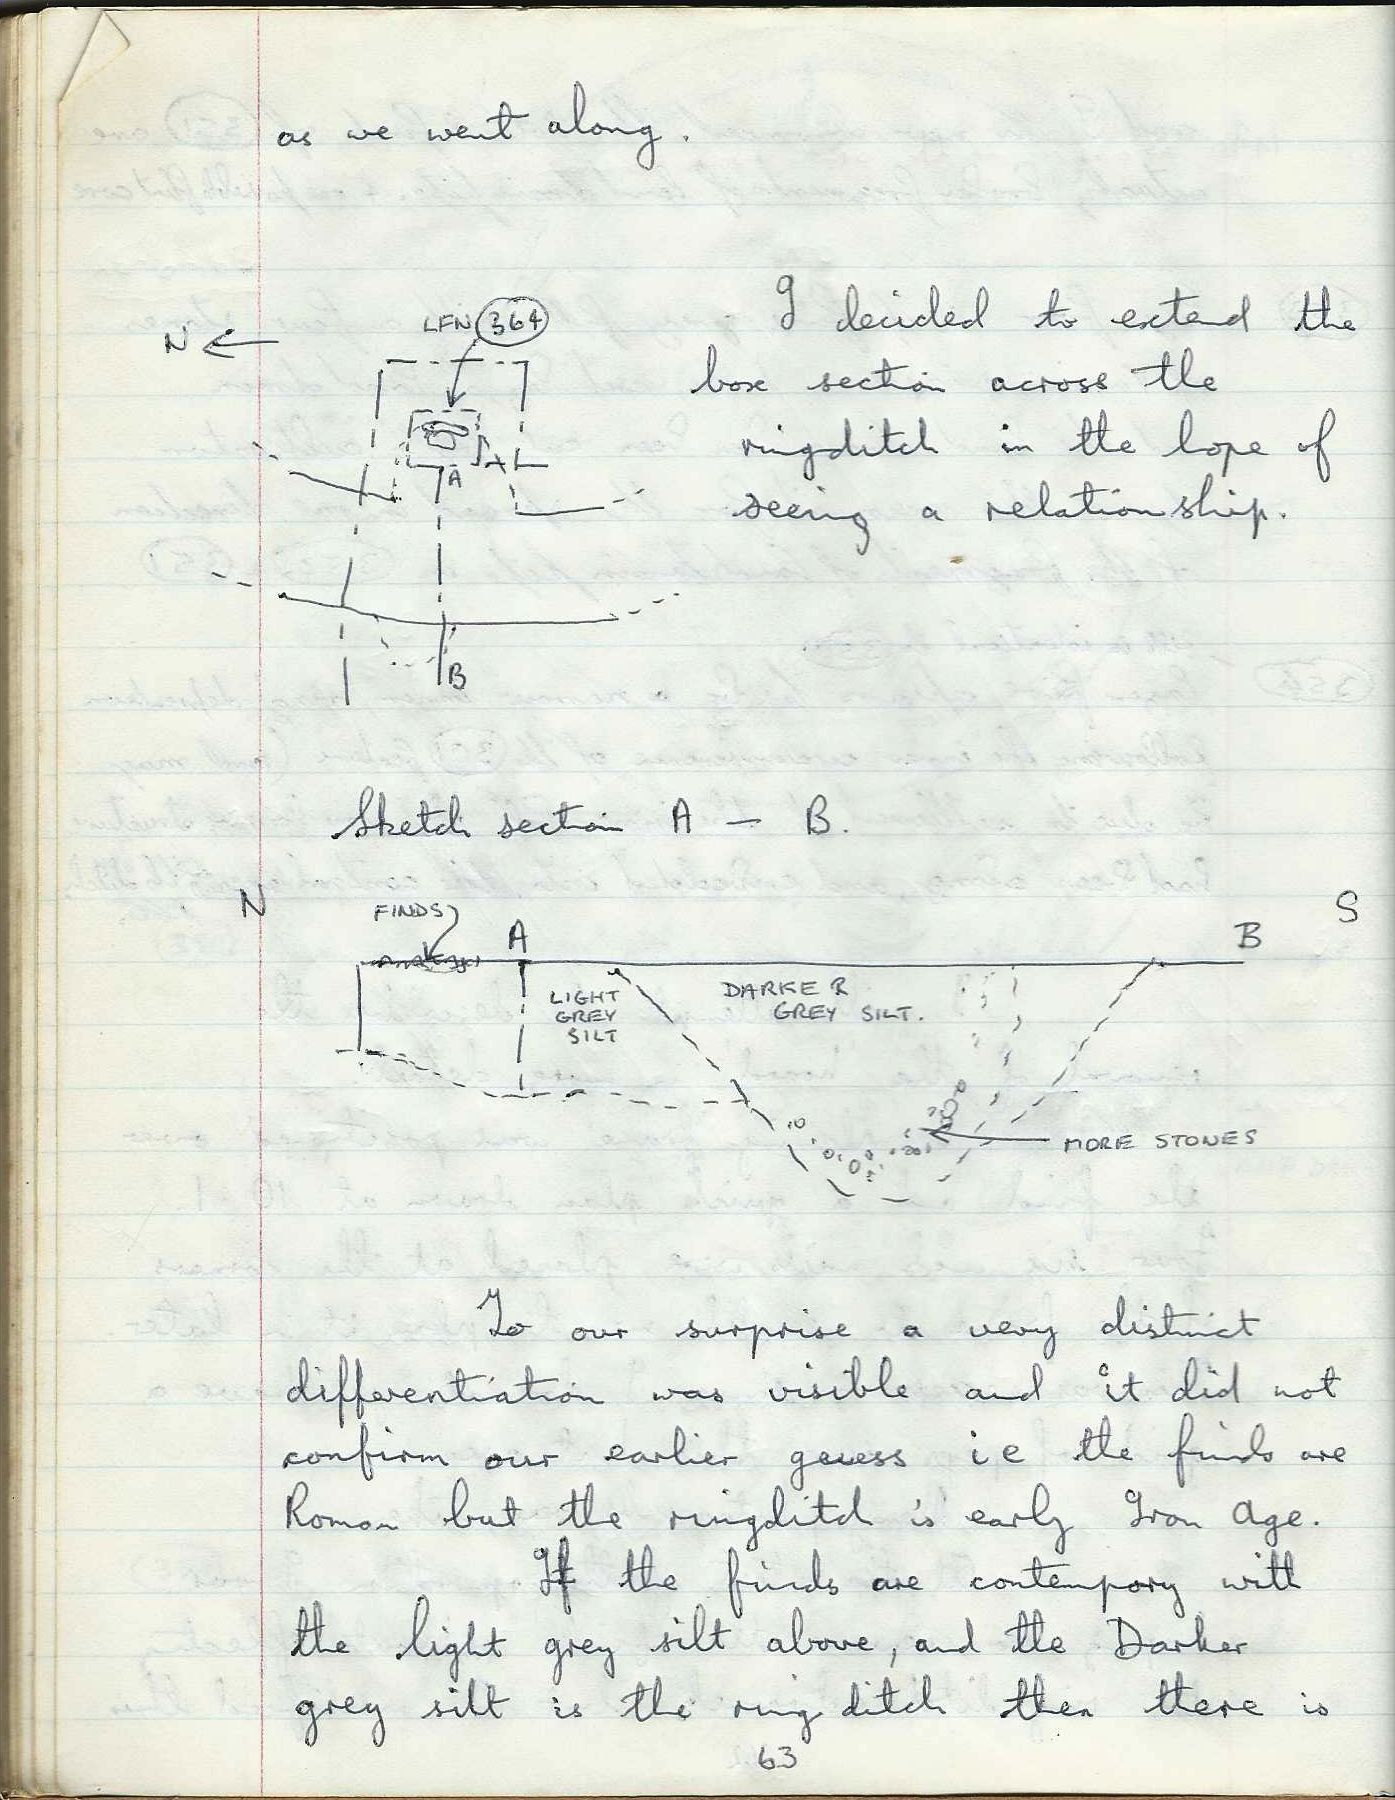 as we went along.
N
LFN 364
I decided to extend the
box section across the
ringditch in the hope of
seeing a relationship.
A
B
Sketch section A - B.
N
S
FINDS
A
B
LIGHT
GREY
SILT
DARKER
GREY SILT.
MORE STONES
To our surprise a very distinct
differentiation was visible and it did not
confirm our earlier guess ie the finds are
Roman but the ringditch is early Iron Age.
If the finds are contempory with
the light grey silt above, and the Darker
grey silt is the ring ditch then there is
63